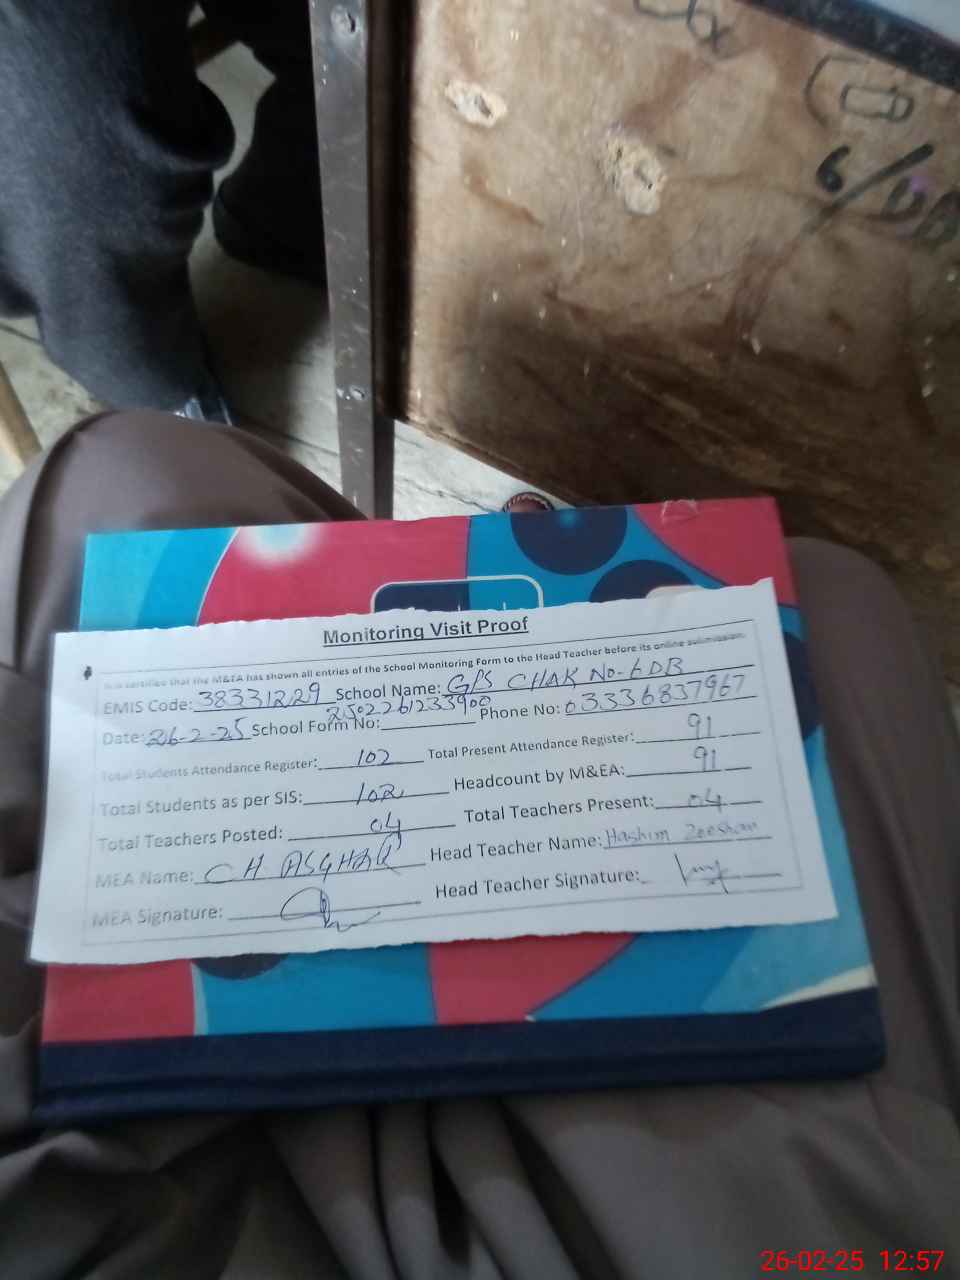 6/DB
Monitoring Visit Proof
It is certified that the M&EA has shown all entries of the School Monitoring Form to the Head Teacher before its online submission.
EMIS Code: 38331229 School Name: GPS CHAK No-6DB
Date: 26-2-25 School Form No: 2502261233900 Phone No: 03336837967
Total Students Attendance Register: 102 Total Present Attendance Register: 91
Total Students as per SIS: 102 Headcount by M&EA: 91
Total Teachers Posted: 04 Total Teachers Present: 04
MEA Name: CH ASGHAR Head Teacher Name: Hashim Zeeshan
MEA Signature: Head Teacher Signature:
26-02-25 12:57